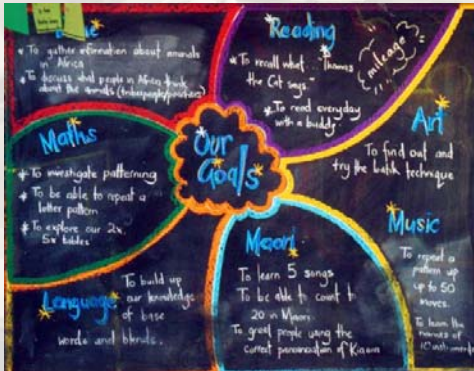 * To gather information about animals
in Africa
* To discuss what people in Africa think
about the animals
Reading
* To recall what "Thomas
the Cat says."
* To read everyday
with a buddy.
mileage
Maths
* To investigate patterning
* To be able to repeat a
letter pattern
* To explore our 2x
5x tables
Our
Goals
Art
To find out and
try the batik technique
Music
To repeat a
pattern up
up to 50
moves.
To learn the
names of
10 instruments
Maori
To learn 5 songs
To be able to count to
20 in Maori
To greet people using the
correct pronunciation of Kiaora
Language
To build up
our knowledge
of base
words and blends.